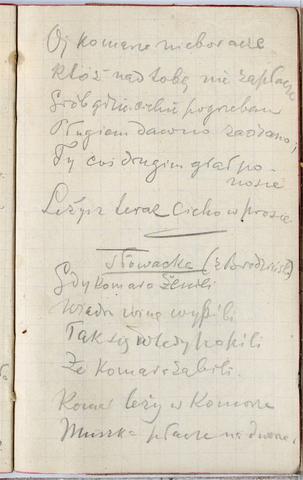 Oj komarze nieboracze
Któż nad tobą nie zapłacze
Grób gdzie cię pogrzebano
Pługiem dawno zaorano,
Ty coś drugim grał po
nosie
Leżysz teraz cicho w prosie
Słowacka (z Brodziński)
Gdy komara żenili
Wiadro wina wypili
Tak się wtedy popili
Że komara zabili.
Komar leży w komorze
Muszka płacze na dworze,